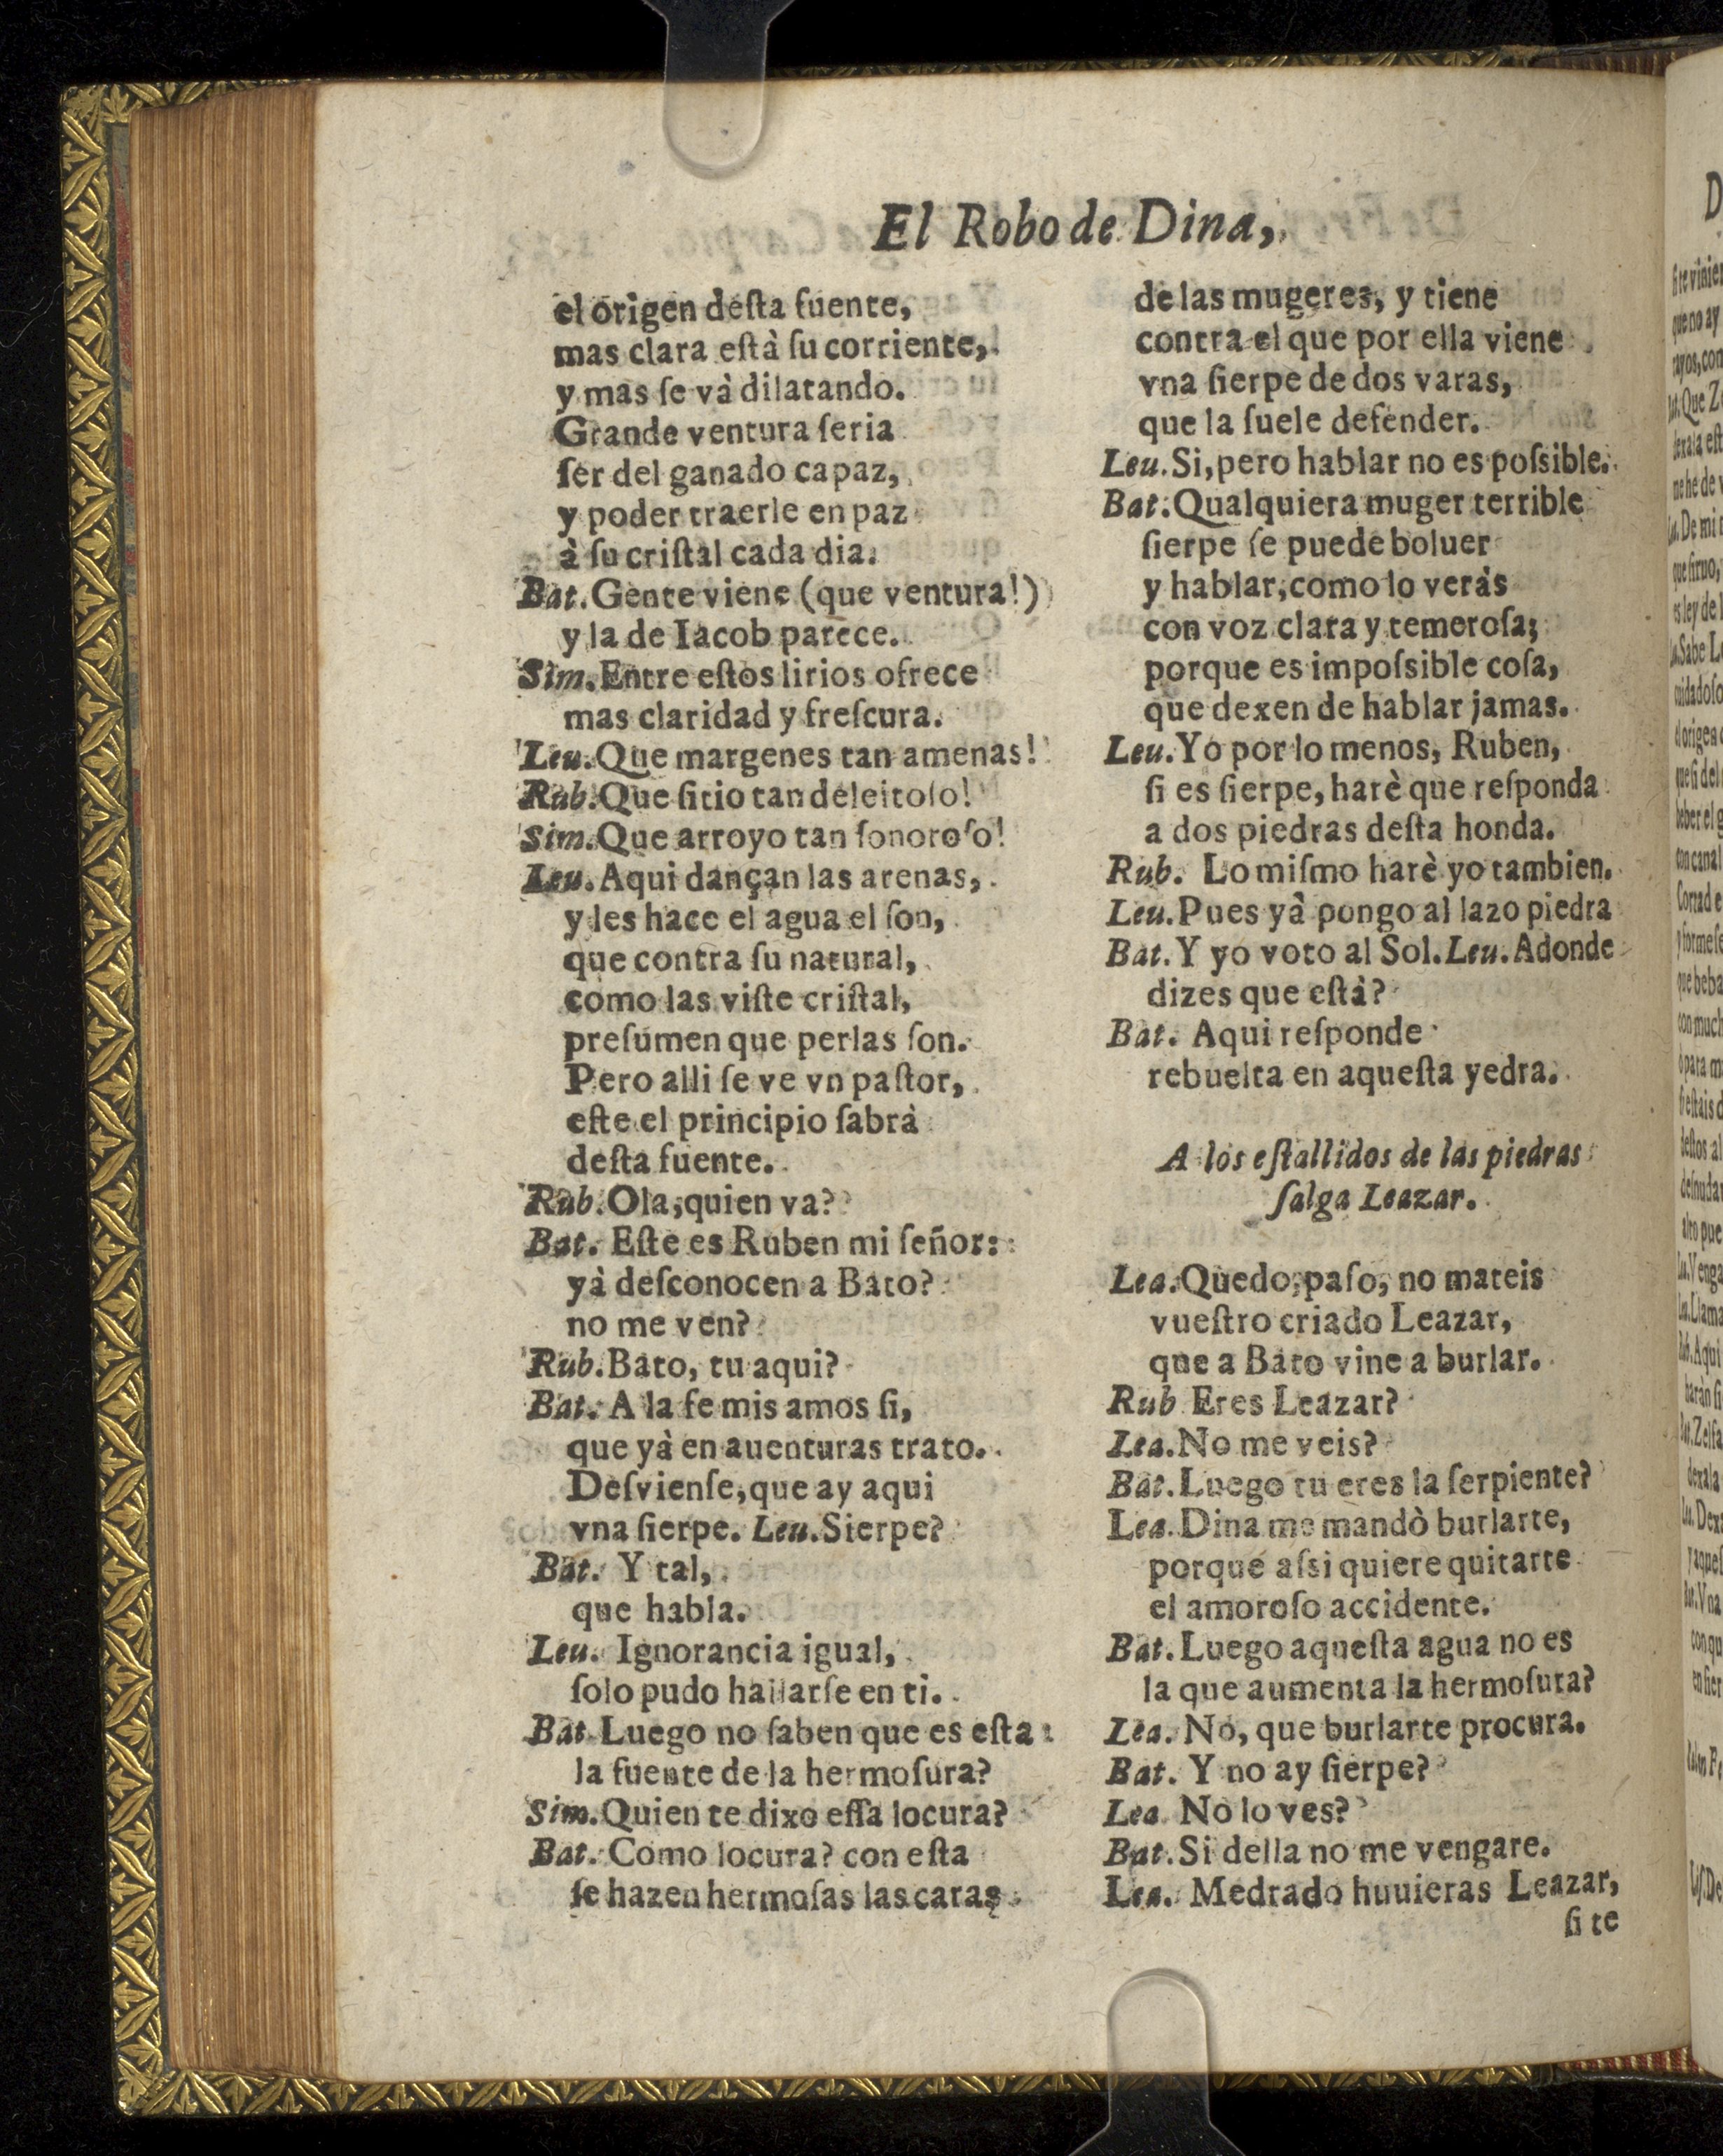 El Robo de Dina,
el origen deſta fuente,
mas clara eſtà ſu corriente,
y mas ſe và dilatando.
Grande ventura ſeria
ſer del ganado capaz,
y poder traerle en paz
à ſu criſtal cada dia.
Bat. Gente viene (que ventura!)
y la de Iacob parece.
Sim. Entre eſtos lirios ofrece
mas claridad y freſcura.
Leu. Que margenes tan amenas!
Rub. Que ſitio tan deleitoſo!
Sim. Que arroyo tan ſonoroſo!
Leu. Aqui dançan las arenas,
y les hace el agua el ſon,
que contra ſu natural,
como las viſte criſtal,
preſumen que perlas ſon.
Pero alli ſe ve vn paſtor,
eſte el principio ſabrà
deſta fuente.
Rub. Ola, quien va?
Bat. Eſte es Ruben mi ſeñor:
yà deſconocen a Bato?
no me ven?
Rub. Bato, tu aqui?
Bat. A la fe mis amos ſi,
que yà en auenturas trato.
Deſvienſe, que ay aqui
vna ſierpe. Leu. Sierpe?
Bat. Y tal,
que habla.
Leu. Ignorancia igual,
ſolo pudo hallarſe en ti.
Bat Luego no ſaben que es eſta
la fuente de la hermoſura?
Sim. Quien te dixo eſſa locura?
Bat. Como locura? con eſta
ſe hazen hermoſas las caras
de las mugeres, y tiene
contra el que por ella viene
vna ſierpe de dos varas,
que la ſuele defender.
Leu. Si, pero hablar no es poſsible.
Bat. Qualquiera muger terrible
ſierpe ſe puede boluer
y hablar, como lo veràs
con voz clara y temeroſa;
porque es impoſsible coſa,
que dexen de hablar jamas.
Leu. Yo por lo menos, Ruben,
ſi es ſierpe, harè que reſponda
a dos piedras deſta honda.
Rub. Lo miſmo harè yo tambien.
Leu. Pues yà pongo al lazo piedra
Bat. Y yo voto al Sol. Leu. Adonde
dizes que eſtà?
Bat. Aqui reſponde
rebuelta en aqueſta yedra.
A los eſtallidos de las piedras
ſalga Leazar.
Lea. Quedo, paſo, no mateis
vueſtro criado Leazar,
que a Bato vine a burlar.
Rub Eres Leazar?
Lea. No me veis?
Bat. Luego tu eres la ſerpiente?
Lea. Dina me mandò burlarte,
porque aſsi quiere quitarte
el amoroſo accidente.
Bat. Luego aqueſta agua no es
la que aumenta la hermoſura?
Lea. No, que burlarte procura.
Bat. Y no ay ſierpe?
Lea No lo ves?
Bat. Si della no me vengare.
Lea. Medrado huuieras Leazar,
ſi te